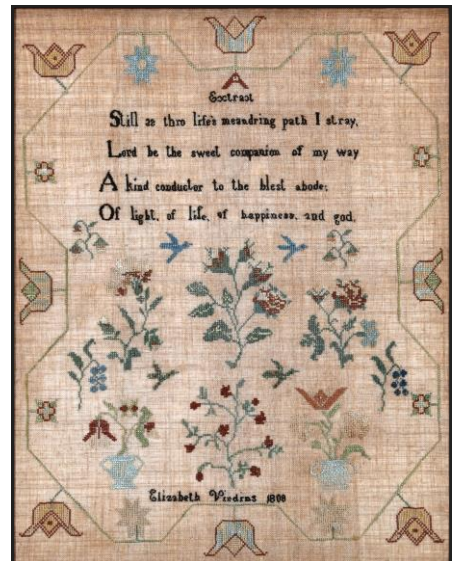 A
Extract
Still as thro life's meandring path I stray,
Lord be the sweet companion of my way
A kind conductor to the blest abode;
Of light, of life, of happiness, and god,
Elizabeth 1808